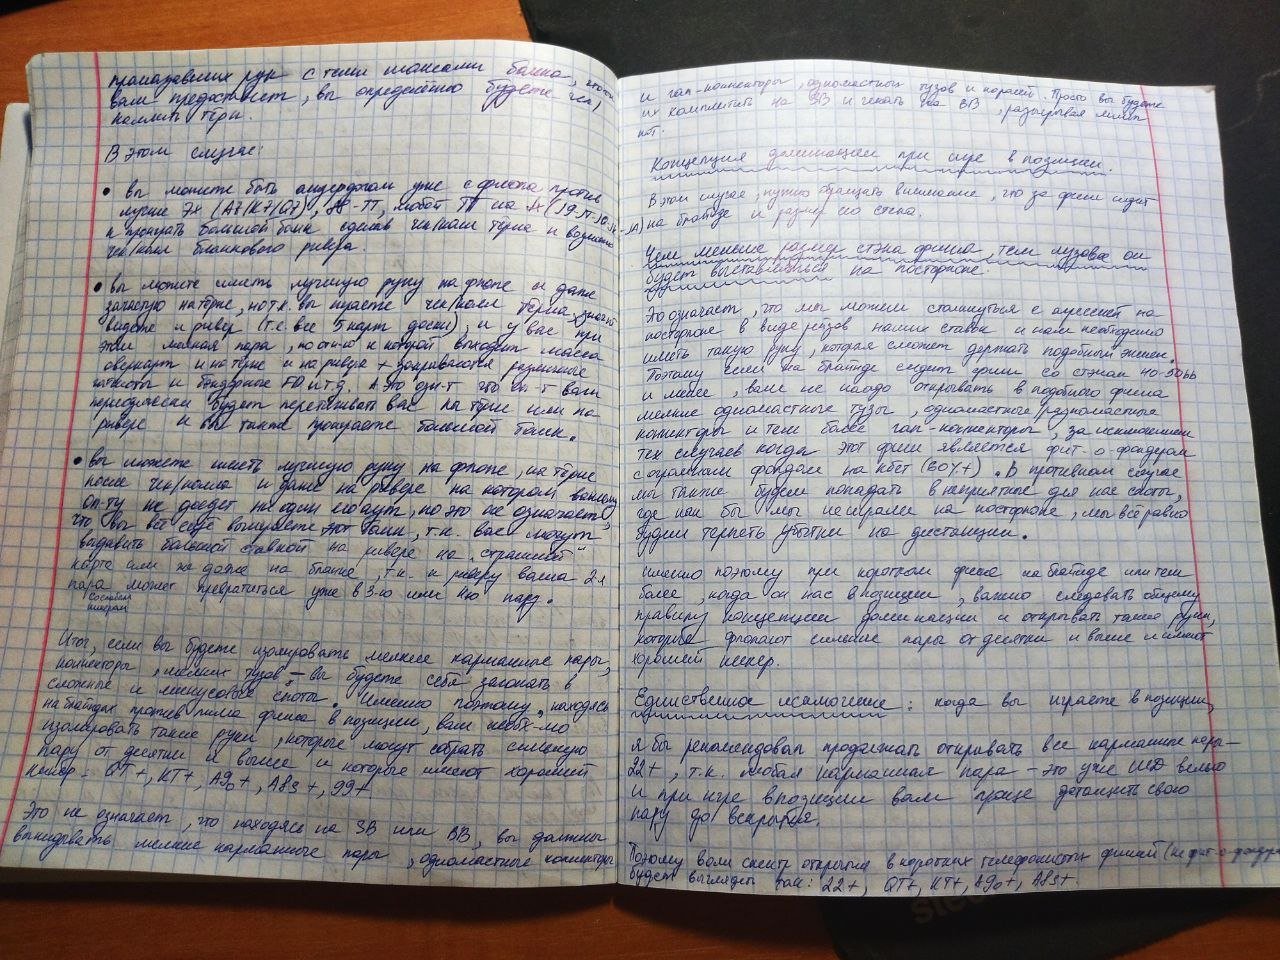 промазавших рук с теми шансами банка, что он
вам предоставит, вы определённо будете чек/
коллить тёрн.
В этом случае:
• вы можете быть андердогом уже с флопа против
лучше Эх (A7/K7/Q7), ТТ, любой ТП на
и проиграть большой банк сделав чек/колл тёрна и возможно
чек/колл бланкового ривера.
• вы можете иметь лучшую руку на флопе и даже
зачастую на тёрне, но т.к. вы играете чек/колл тёрна, значит
видете и ривер (т.е. все 5 карт доски), и у вас при
этом мелкая пара, постфлоп к которой выходит масса
оверкарт и на тёрне и на ривере + закрываются различные
готшоты и бэкдорные FD и т.д. А это озн-т что оп-т вам
периодически будет перетягивать вас на тёрне или на
ривере и вы также проиграете большой банк.
• вы можете иметь лучшую руку на флопе, на тёрне
после чек/колла и даже на ривере на котором вашему
оп-ту не доедет ни один его аут, но это не означает,
что вы всё ещё выиграете этот банк, т.к. вас могут
выдавить большой ставкой на ривере на „страшной"
карте или же даже на бланке, т.к. к риверу ваша 2-я
пара может превратиться уже в 3-ю или 4ю пару.
Итог, если вы будете изолировать мелкие карманные пары,
коннекторы, мелких тузов – вы будете себя загонять в
сложные и минусовые споты. Именно поэтому, находясь
на блайндах против лимпа фиша в позиции, вам необх-мо
изолировать такие руки, которые могут собрать сильную
пару от десятки и выше и которые имеют хороший
кикер: QT+, KT+, A9o+, A8s+, 99+
Это не означает, что находясь на SB или BB, вы должны
выкидывать мелкие карманные пары, одномастные коннекторы
и гап-коннекторы, одномастных тузов и королей. Просто вы будете
их комплитить на SB и чекать на BB, разыгрывая лимп
пот.
Концепция доминации при игре в позиции.
В этом случае, нужно обращать внимание, что за фиш сидит
на блайнде и размер его стека.
Чем меньше размер стэка фиша, тем лузовее он
будет выставляться на постфлопе.
Это означает, что мы можем столкнуться с агрессией на
постфлопе в виде рейзов наших ставок и нам необходимо
иметь такую руку, которая сможет держать подобный экшен.
Поэтому если на блайнде сидит фиш со стэком 40-50bb
и менее, вам не надо открывать в подобного фиша
мелкие одномастные тузы, одномастные/разномастные
коннекторы и тем более гап-коннекторы, за исключением
тех случаев когда этот фиш является фит-о-фолдером
с огромным фолдом на кбет (60%+). В противном случае
мы также будем попадать в неприятные для нас споты,
где как бы мы не играли на постфлопе, мы всё равно
будем терпеть убытки на дистанции.
Именно поэтому при коротком фише на блайнде или тем
более, когда он на нас в позиции, важно следовать общему
правилу концепции доминации и открывать такие руки,
которые флопают сильные пары от десятки и выше и имеют
хороший кикер.
Единственное исключение: когда вы играете в позиции,
я бы рекомендовал продолжать открывать все карманные пары –
22+, т.к. любая карманная пара – это уже ШД велью
и при игре в позиции вам проще дотащить свою
пару до вскрытия.
Поэтому ваш спектр открытия в коротких телефонистых фишей (не фит-о-фолдеров
будет выглядеть так: 22+, QT+, KT+, A9o+, A8s+.